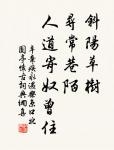 斜陽草樹
尋常巷陌
人道寄奴曾住
辛棄疾永遇樂京口北
固亭懷古詞